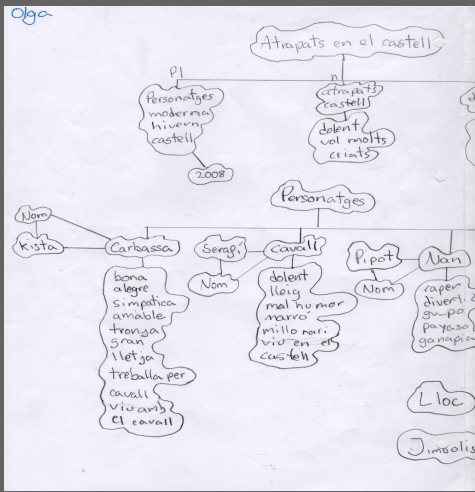 Olga
Atrapats en el castell
Pl
n
Personatges
moderna
hivern
castell
2008
atrapats
castell
dolent
vol molts
criats
Personatges
Nom
Kista
Carbassa
bona
alegre
simpatica
amable
tronja
gran
lletja
treballa per
cavall
viu amb
el cavall
Seragi
Nom
Cavall
dolent
lleig
mal humor
marró
millonari
viu en el
castell
Pipot
Nom
Nan
raper
diverti
gupo
payaso
ganapia
Lloc